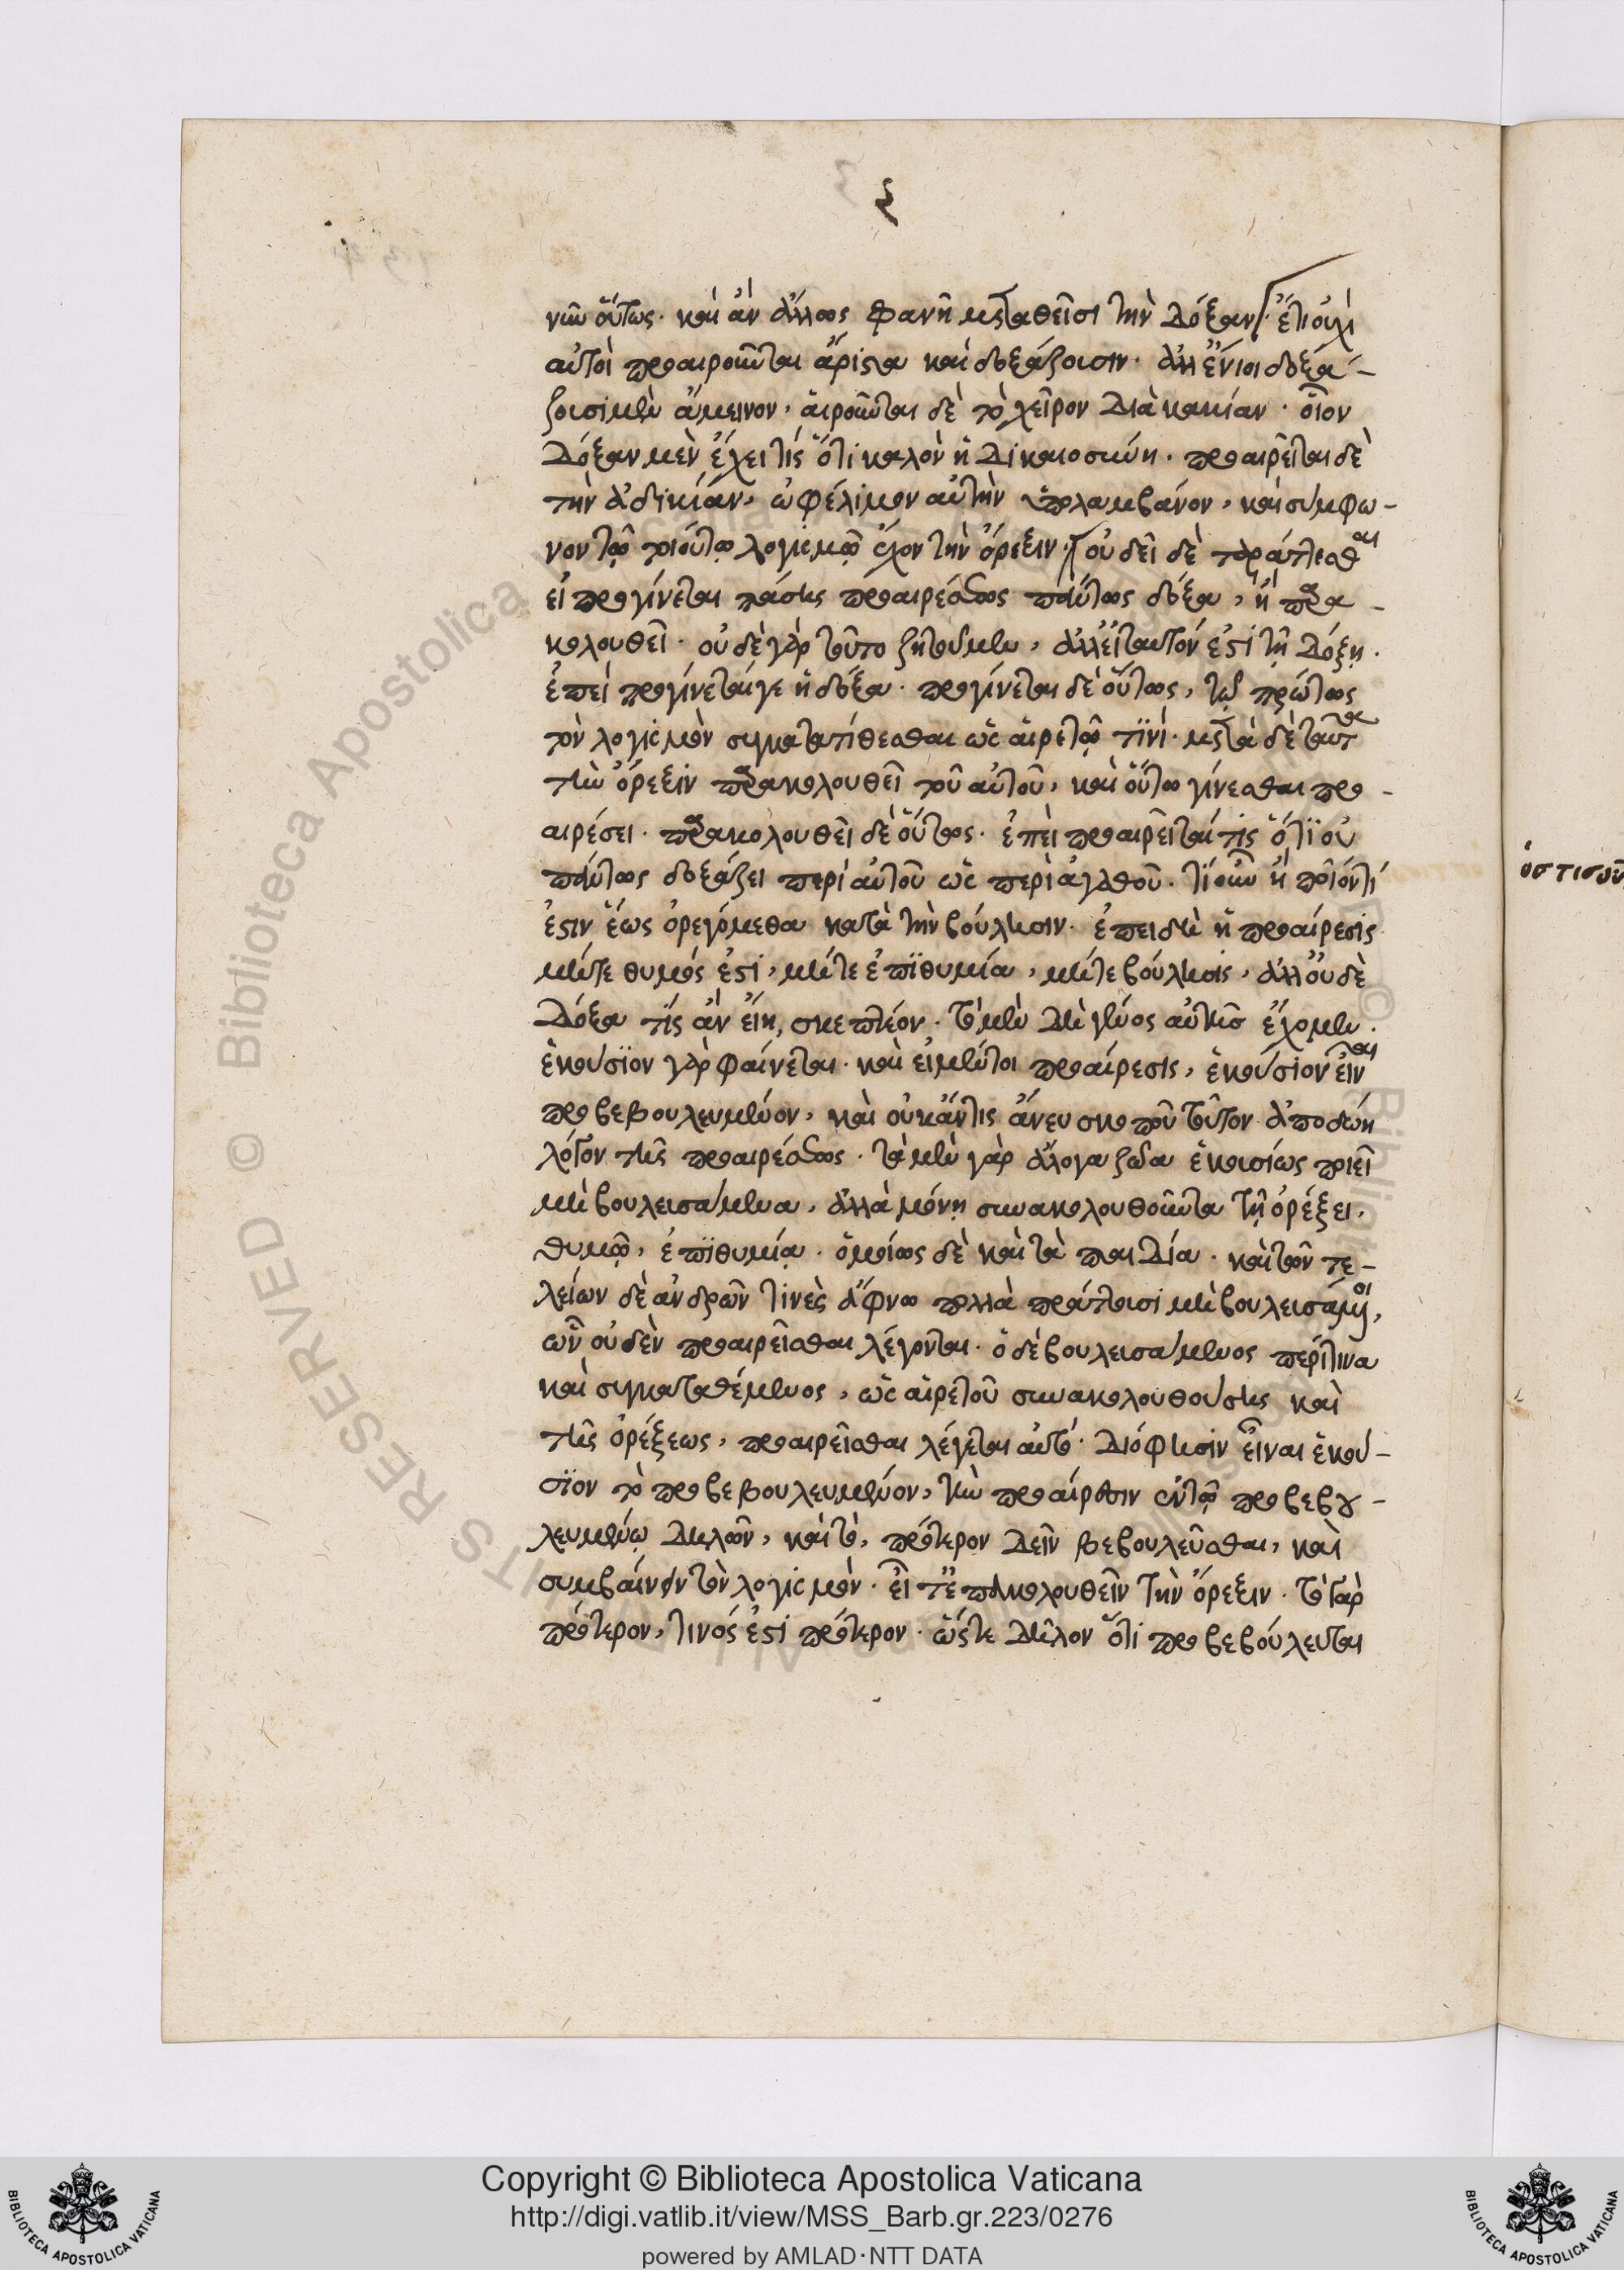 ξ
νῦν οὕτως. κἂν ἄλλως φανῇ μεταθεῖσι τὴν δόξαν. ἔτι οὐχὶ
αὐτοὶ προαιροῦνται ἄριστα καὶ δοξάζουσιν. ἀλλ' ἔνιοι δοξά-
ζουσι μὲν ἄμεινον, αἱροῦνται δὲ τὸ χεῖρον διὰ κακίαν. οἷον
δόξαν μὲν ἔχει τίς ὅτι καλὸν ἡ δικαιοσύνη. προαιρεῖται δὲ
τὴν ἀδικίαν, ὠφέλιμον αὐτὴν ὑπολαμβάνον, καὶ συμφω-
νον τῷ τοιούτῳ λογισμῷ ἔχον τὴν ὄρεξιν. οὐ δεῖ δὲ ταράττεσθαι
εἰ προγίνεται πάσης προαιρέσεως πάντως δόξα, ἢ παρα-
κολουθεῖ. οὐδὲ γὰρ τοῦτο ζητοῦμεν, ἀλλ' εἰ ταυτόν ἐστι τῇ δόξῃ.
ἐπεὶ προγίνεταί γε ἡ δόξα. προγίνεται δὲ οὕτως, τῷ πρώτως
τὸν λογισμὸν συγκατατίθεσθαι ὡς αἱρετῷ τινί. μετὰ δὲ ταῦτα
τὴν ὄρεξιν παρακολουθεῖ τοῦ αὐτοῦ, καὶ οὕτω γίνεσθαι προ-
αιρέσει. παρακολουθεῖ δὲ οὕτως. ἐπεὶ προαιρεῖταί τις ὅτι οὐ
πάντως δοξάζει περὶ αὐτοῦ ὡς περὶ ἀγαθοῦ. τί οὖν ἢ ποῖόν τί
ἐστιν ἕως ὀρεγόμεθα κατὰ τὴν βούλησιν. ἐπειδὴ ἡ προαίρεσις
μήτε θυμός ἐστι, μήτε ἐπιθυμία, μήτε βούλησις, ἀλλ' οὐδὲ
δόξα τίς ἂν εἴη, σκεπτέον. τὸ μὲν δὴ γένος αὐτῆς ἔχομεν.
ἑκούσιον γὰρ φαίνεται. καὶ εἰ μέντοι προαίρεσις, ἑκούσιον εἶναι
προβεβουλευμένον, καὶ οὐκ ἄν τις ἄνευ σκοποῦ τοῦτον ἀποδῴη
λόγον τῆς προαιρέσεως. τὰ μὲν γὰρ ἄλογα ζῷα ἑκουσίως ποιεῖ
μὴ βουλευσάμενα, ἀλλὰ μόνῃ συνακολουθοῦντα τῇ ὀρέξει,
θυμῷ, ἐπιθυμίᾳ. ὁμοίως δὲ καὶ τὰ παιδία. καὶ τῶν τε-
λείων δὲ ἀνδρῶν τινὲς ἄφνω πολλὰ πράττουσι μὴ βουλευσάμενοι,
ὧν οὐδὲν προαιρεῖσθαι λέγονται. ὁ δὲ βουλευσάμενος περί τινα
καὶ συγκαταθέμενος, ὡς αἱρετοῦ συνακολουθούσης καὶ
τῆς ὀρέξεως, προαιρεῖσθαι λέγεται αὐτό. διό φησιν εἶναι ἑκού-
σιον τὸ προβεβουλευμένον, τὴν προαίρεσιν ἐν τῷ προβεβου-
λευμένῳ δηλῶν, καὶ τὸ, πρότερον δεῖν βεβουλεῦσθαι, καὶ
συμβαίνειν τὸν λογισμὸν. εἶτ' ἐπακολουθεῖν τὴν ὄρεξιν. τὸ γὰρ
πρότερον, τινός ἐστι πρότερον. ὥστε δῆλον ὅτι προβεβούλευται
ὁστισοῦν
Copyright © Biblioteca Apostolica Vaticana
http://digi.vatlib.it/view/MSS_Barb.gr.223/0276
powered by AMLAD·NTT DATA